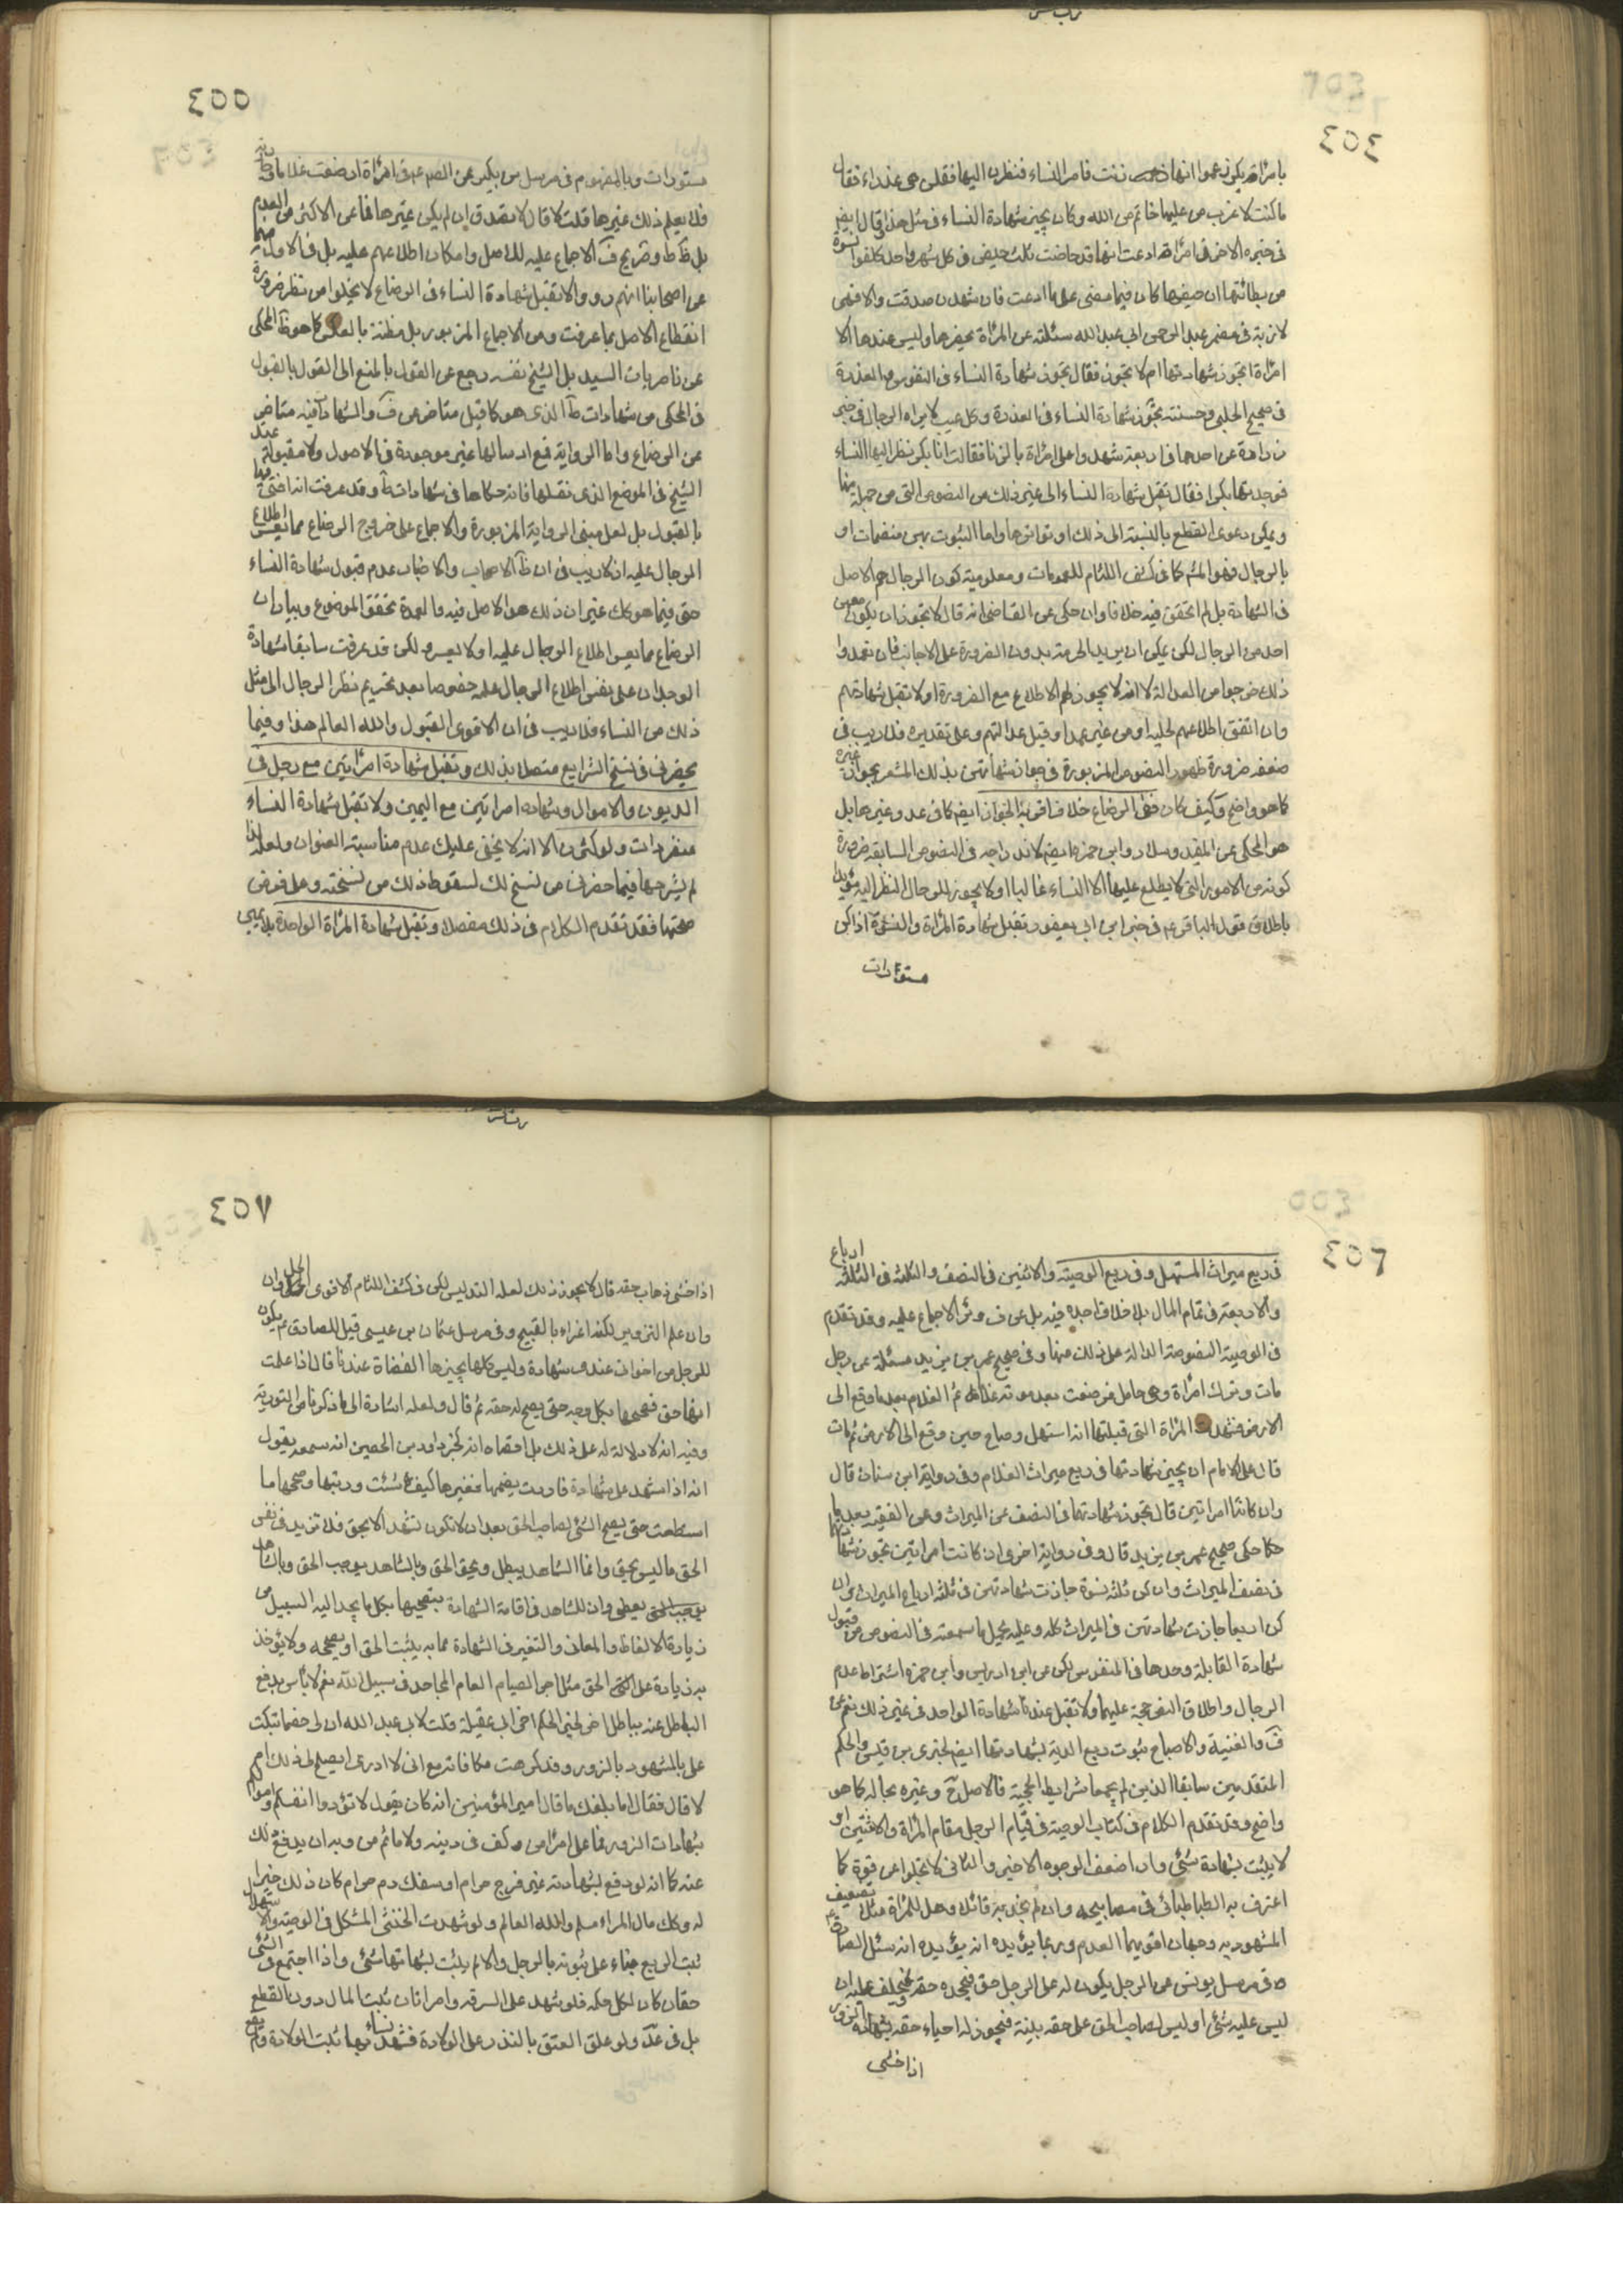 ٤٥٤
بامرأة بكر زعموا انها زنت فامر النساء فنظرن اليها فقلن هى عذراء فقال
ما كنت لاضرب من عليها خاتم من الله وكان يجيز شهادة النساء فى مثل هذا وقال ايضا
فى خبره الاخر فى امرأة ادعت انها قد حاضت ثلث حيض فى كل شهر واحد كلفوا نسوة
من بطانتها ان حيضها كان فيما مضى على ما ادعت فان شهدن صدقت والا فهى
كاذبة فى مضمر عبد الرحمن ابى عبد الله سئلته عن المرأة يحضرها وليس عندها الا
امرأة اتجوز شهادتها ام لا تجوز فقال تجوز شهادة النساء فى المنفوس والعذرة
فى صحيح الحلبى وحسنته تجوز شهادة النساء فى العذرة وكل عيب لا يراه الرجال فى خبر
زرارة عن احدهما فى اربعة شهدوا على امرأة بالزنا فقالت انا بكر فنظر اليها النساء
فوجدنها بكرا فقال تقبل شهادة النساء الى غير ذلك من النصوص التى من جملة منها
ويمكن دعوى القطع بالنسبة الى ذلك او تواترها واما الثبوت بهن منضمات او
بالرجال فهو المشهور كما فى كشف اللثام للعمومات ومعلومية كون الرجال هم الاصل
فى الشهادة بل لم اتحقق فيه خلافا وان حكى عن القاضى انه قال لا تجوز ان يكون معهن
احد من الرجال لكن يمكن ان يريد الحرمة بدون الضرورة على الاجانب فان تعمدوا
ذلك خرجوا من العدالة لا انه لا يجوز لهم الاطلاع مع الضرورة او لا تقبل شهادتهم
وان اتفق اطلاعهم عليه او من غير عمد او قبل عدالتهم وعلى تقديره فلا ريب فى
ضعفه ضرورة ظهور النصوص المزبورة فى جواز شهادتهن بذلك المشعر بجواز غيره
كما هو واضح وكيف كان ففى الرضاع خلاف اقربه الجواز ايضا كما فى عد وغيرها بل
هو المحكى عن المفيد وسلار وابن حمزة ايضا لاندراجه فى النصوص السابقة ضرورة
كونه من الامور التى لا يطلع عليها الا النساء غالبا او لا يجوز للرجال النظر اليه مؤيدا
باطلاق قول الباقر ع فى خبر ابن ابى يعفور تقبل شهادة المرأة والنسوة اذا كن
مستورات
٤٥٥
مستورات وبالمفهوم فى مرسل بن بكير عن الصم ع فى امرأة ارضعت غلاما
قال يعلم ذلك غيرها قلت لا قال لا تصدق ان لم يكن غيرها فما عن الاكثر من العدم
بل ظ ط وصريح ف الاجماع عليه للاصل وامكان اطلاعهم عليه بل فى الاول
عن اصحابنا انهم رووا لا تقبل شهادة النساء فى الرضاع لا يخلوا من نظر ضرورة
انقطاع الاصل بما عرفت ومن الاجماع المزبور بل مظنة بالعكس كما هو ظ المحكى
عن ناصريات السيد بل الشيخ نفسه رجع عن القول بالمنع الى القول بالقبول
فى المحكى من شهادات ط الذى هو كما قيل متاخر عن ف والشهادات فيه متاخر
عن الرضاع واما الرواية فمع ارسالها غير موجودة فى الاصول ولا مقبولة عند
الشيخ فى الموضع الذى نقلها فانه حكاها فى شهادات ط وقد عرفت انه افتى فيها
بالقبول بل لعل مبنى الرواية المزبورة والاجماع على خروج الرضاع مما يعسر اطلاع
الرجال عليه اذ لا ريب فى ان ظ الاصحاب والاخبار عدم قبول شهادة النساء
حتى فيما هو كك غير ان ذلك هو الاصل فيه والعمدة تحقق الموضوع وبيان ان
الرضاع مما يعسر اطلاع الرجال عليه او لا يعسر ولكن قد عرفت سابقا شهادة
الوجدان على نفس اطلاع الرجال عليه خصوصا بعد تحريم نظر الرجال الى مثل
ذلك من النساء فلا ريب فى ان الاقوى القبول والله العالم هذا وفيما
يحضرنى فى نسخ الشرايع متصلا بذلك وتقبل شهادة امرأتين مع رجل فى
الديون والاموال وشهادة امراتين مع اليمين ولا تقبل شهادة النساء
منفردات ولو كثرن الا انه لا يخفى عليك عدم مناسبة العنوان ولعله لذا
لم يشرحها فيما حضرنى من نسخ لك لسقوط ذلك من نسخته وعلى فرض
صحتها فقد تقدم الكلام فى ذلك مفصلا وتقبل شهادة المرأة الواحدة بلا يمين
٤٥٦
فى ربع ميراث المستهل وفى ربع الوصية والاثنين فى النصف والثلثة فى الثلثة ارباع
والاربعة فى تمام المال بلا خلاف اجده فيه بل عن ف وئر الاجماع عليه وقد تقدم
فى الوصية النصوص الدالة على ذلك منها وفى صحيح عمر بن يزيد مسئلة عن رجل
مات وترك امرأة وهى حامل فوضعت بعد موته غلاما ثم مات الغلام بعد ما وقع الى
الارض فشهدت المرأة التى قبلتها انه استهل وصاح حين وقع الى الارض ثم مات
قال على الامام ان يجيز شهادتها فى ربع ميراث الغلام وفى رواية ابن سنان قال
وان كانتا امراتين قال تجوز شهادتهما فى النصف من الميراث وعن الفقيه بعد ما
حكا حكى صحيح عمر بن يزيد قال وفى رواية اخرى ان كانت امراتين تجوز شهادتهما
فى نصف الميراث وان كن ثلثة نسوة جازت شهادتهن فى ثلثة ارباع الميراث وان
كن اربعا جازت شهادتهن فى الميراث كله وعليه يحمل ما سمعته فى النصوص من قبول
شهادة القابلة وحدها فى المنفوس لكن عن ابنى ادريس وابن حمزة اشتراط عدم
الرجال واطلاق النصوص حجة عليهما ولا تقبل عندنا شهادة الواحد فى غير ذلك نعم عن
ف والغنية والاصباح ثبوت ربع الدية بشهادتها ايضا لخبرى بن قيس والحكم
المتقدمين سابقا الذين لم يجمعا شرايط الحجية فالاصل ح وغيره بحاله كما هو
واضح وقد تقدم الكلام فى كتاب الوصية فى قيام الرجل مقام المرأة والاثنتين او
لا يثبت بشهادته شئ وان اضعف الوجوه الاخير والثانى لا تخلوا عن قوة كما
اعترف به الطباطبائى فى مصابيحه وان لم نجد به قائلا وهل للمرأة مثلا تضعيف
المشهود به وجهان اقويهما العدم وربما يؤيده انه سئل الصادق ع
فى مرسل يونس عن الرجل يكون له على الرجل حق فيجحده حقه ويحلف عليه ان
ليس عليه شئ او ليس لصاحب الحق على حقه بينة فيجوز له احياء حقه بشهادة الزور
اذا خشى
٤٥٧
اذا خشى ذهاب حقه قال لا يجوز ذلك لعلة التدليس لكن فى كشف اللثام الاقوى الحل وان
وان علم التزوير لكنه اغراء بالقبيح وفى مرسل عثمان بن عيسى قيل للصادق ع يكون
للرجل من اخوان عندى شهادة وليس كلها يجيزها القضاة عندنا قال اذا علمت
انها حق فصححها بكل وجه حتى يصح له حقه ثم قال ولعله اشارة الى ما ذكرنا من التورية
وفيه انه لا دلالة له على ذلك بل اقصاه انه كخبر داود بن الحصين انه سمعه يقول
انه اذا اشهد على شهادة فاردت يقيمها فغيرها كيف شئت ورتبها وصححها ما
استطعت حتى يصح الشئ لصاحب الحق بعد ان لا تكون تشهد الا بحق فلا تزيد فى نفس
الحق ما ليس بحق وانما الشاهد يبطل ويحق الحق وبالشاهد يوجب الحق وبالشاهد
يعطى وان للشاهد فى اقامة الشهادة بتصحيحها بكل ما يجد اليه السبيل من
زيادة الالفاظ والمعانى والتغير فى الشهادة مما به يثبت الحق او يصححه ولا يؤخذ
به زيادة على الحق مثل اجر الصيام القائم المجاهد فى سبيل الله نعم لا باس بدفع
الباطل عنه بباطل اخر لخبر الحكم اخى ابى عقيلة قلت لابى عبد الله ان لى خصما تبكت
على بالشهود بالزور وقد كرهت مكافاته مع انى لا ادرى ايصلح لى ذلك ام
لا قال فقال اما بلغك ما قال امير المؤمنين انه كان يقول لا تؤدوا انفسكم واموالكم
بشهادات الزور فما على امرأ من وكف فى دينه ولا ماثم من ربه ان يدفع ذلك
عنه كما انه لو دفع بشهادته عن فرج حرام او سفك دم حرام كان ذلك خيرا
له وكك مال المراء مسلم والله العالم ولو شهدت الخنثى المشكل فى الوصية والاستهلال
ثبت الربع بناء على ثبوته بالرجل والا لم يثبت بشهادتها شئ واذا اجتمع فى الشئ
حقان كان لكل حكمه فلو شهد على السرقة وامراتان يثبت المال دون القطع
بل فى عد ولو علق العتق بالنذر على الولادة فشهد نساء بها ثبت الولادة ولم يقع